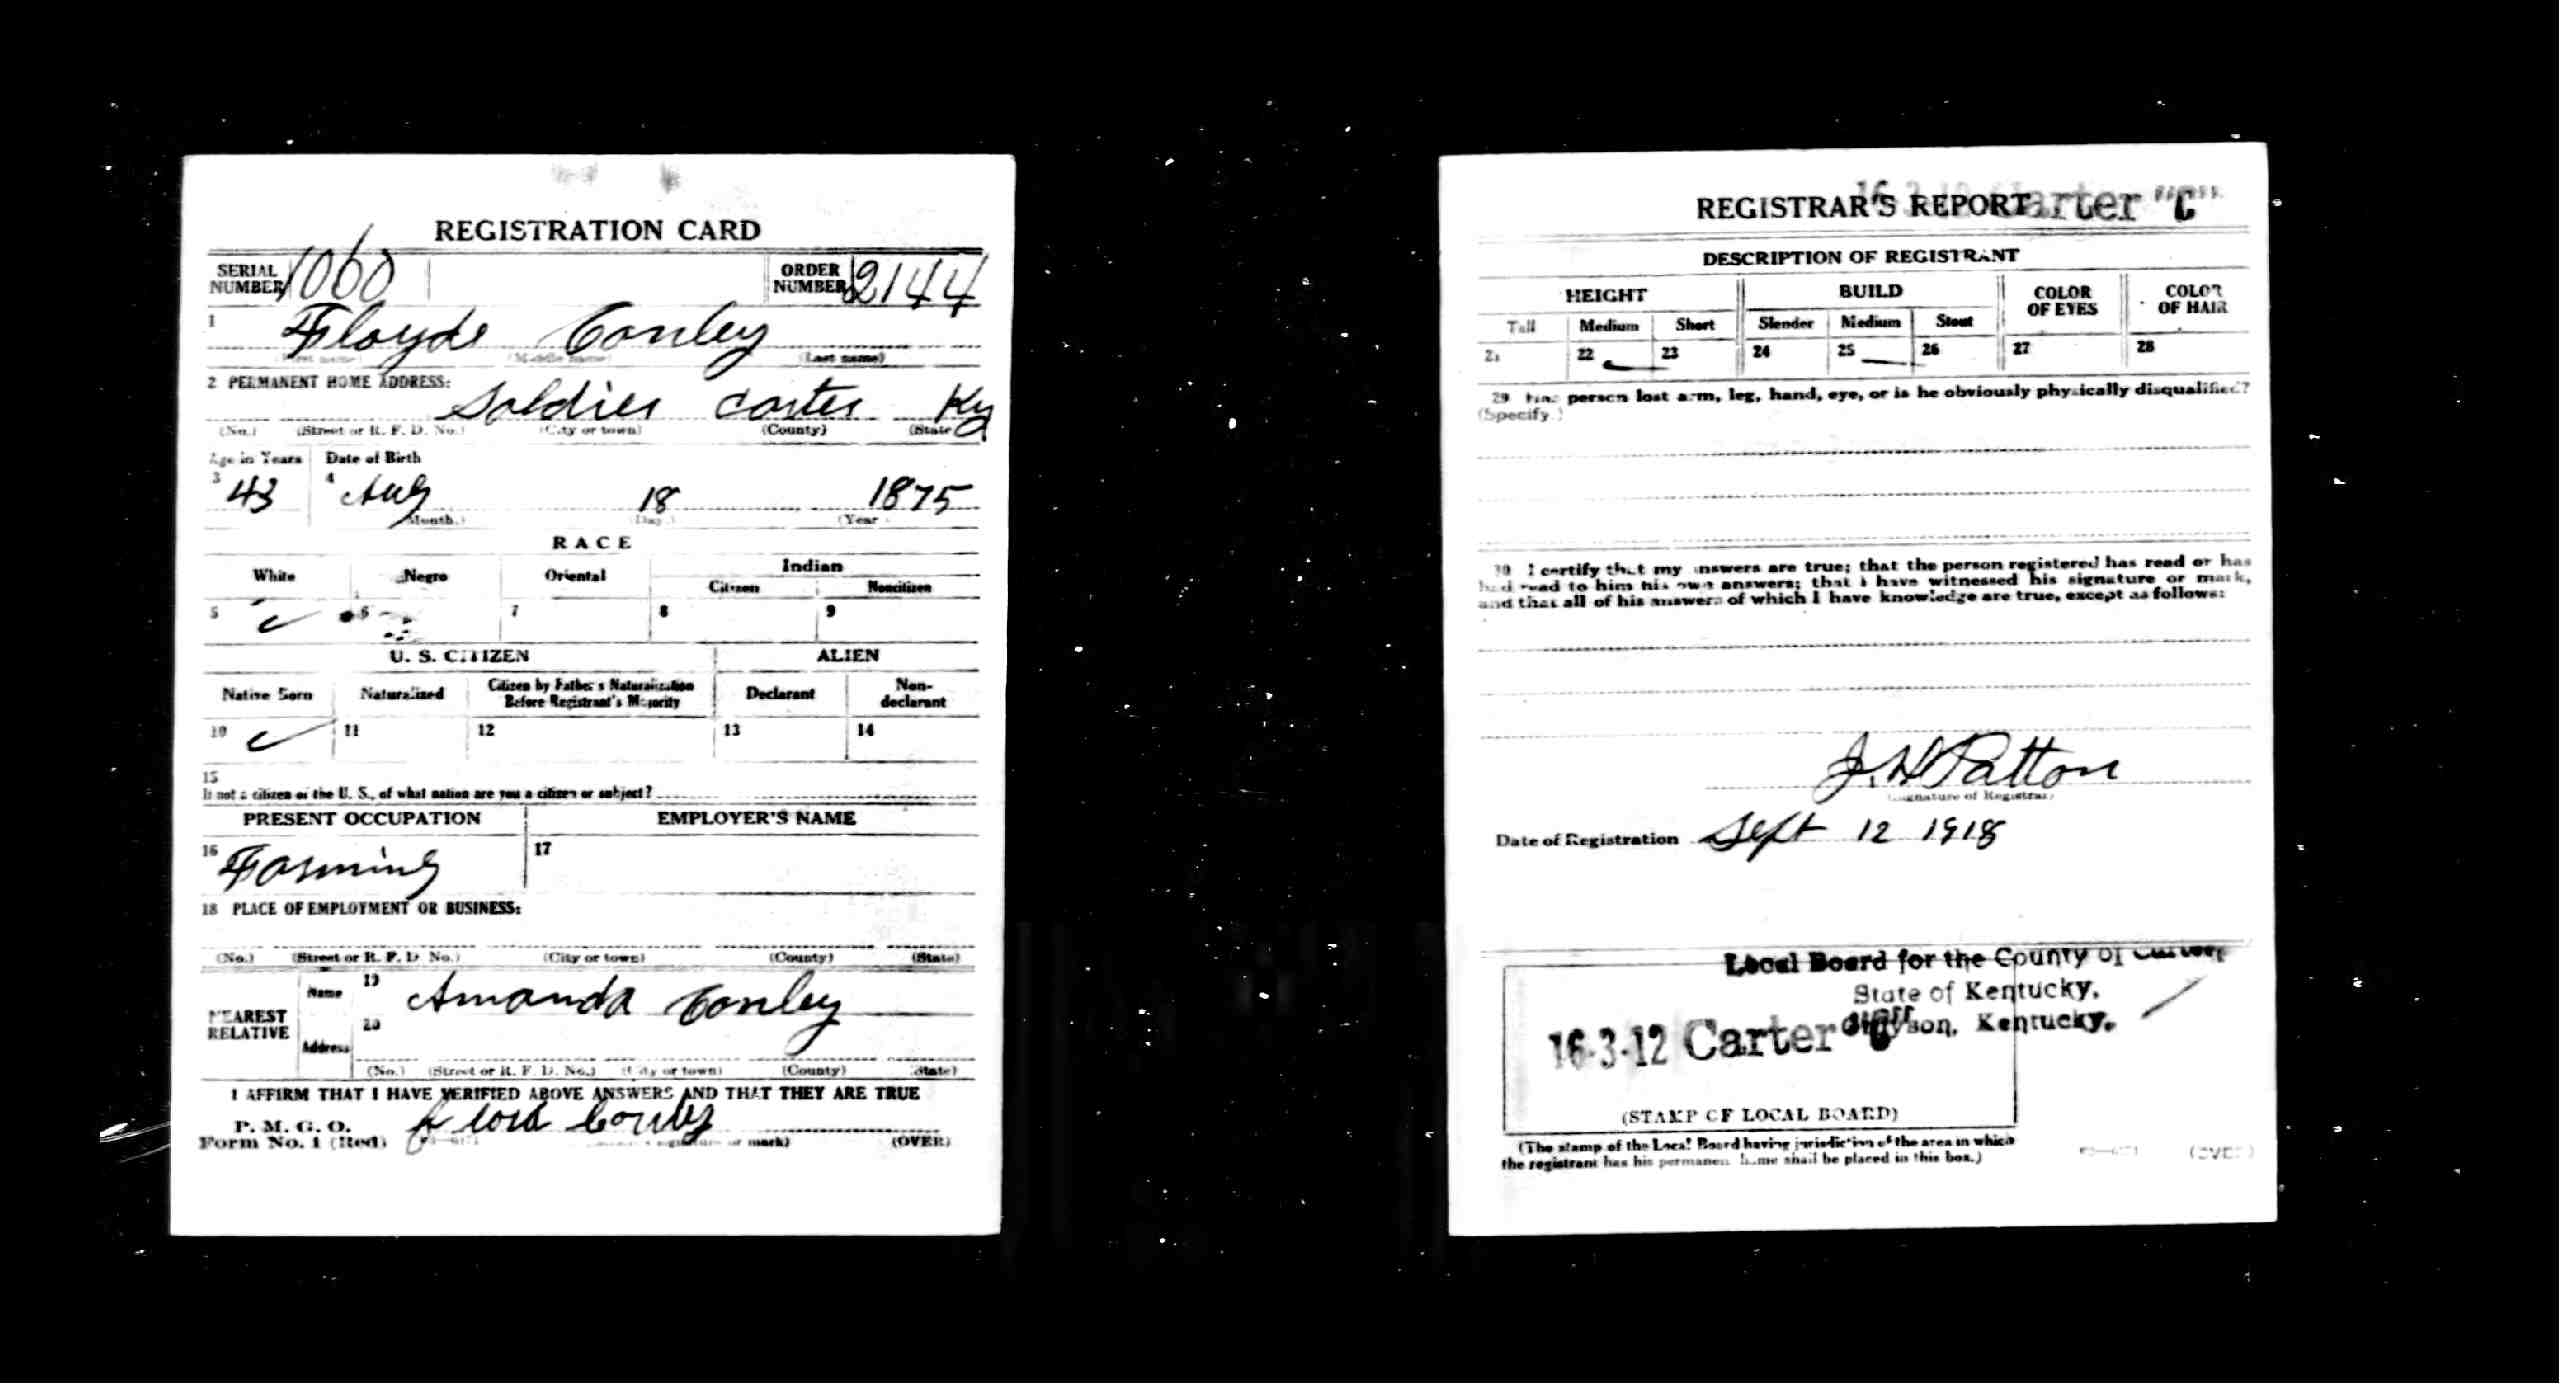 REGISTRATION CARD
SERIAL NUMBER 1060 ORDER NUMBER 2144
1 Floyde Conley
(First name) (Middle name) (Last name)
2 PERMANENT HOME ADDRESS:
Soldier Carter Ky
(No.) (Street or R. F. D. No.) (City or town) (County) (State)
Age in Years Date of Birth
3 43 4 Aug 18 1875
(Month.) (Day.) (Year
RACE
White Negro Oriental Indian
Citizen Noncitizen
5 6 7 8 9
U. S. CITIZEN ALIEN
Native Born Naturalized Citizen by Father's Naturalization Before Registrant's Majority Declarant Non-declarant
10 11 12 13 14
15
If not a citizen of the U. S., of what nation are you a citizen or subject?
PRESENT OCCUPATION EMPLOYER'S NAME
16 Farming 17
18 PLACE OF EMPLOYMENT OR BUSINESS:
(No.) (Street or R. F. D. No.) (City or town) (County) (State)
NEAREST RELATIVE Name 19 Amanda Conley
Address 20
(No.) (Street or R. F. D. No.) (City or town) (County) (State)
I AFFIRM THAT I HAVE VERIFIED ABOVE ANSWERS AND THAT THEY ARE TRUE
P. M. G. O.
Form No. 1 (Red) signature or mark) (OVER)
REGISTRAR'S REPORT
16 3 12 Carter "C"
DESCRIPTION OF REGISTRANT
HEIGHT BUILD COLOR OF EYES COLOR OF HAIR
Tall Medium Short Slender Medium Stout
21 22 23 24 25 26 27 28
29 Has person lost arm, leg, hand, eye, or is he obviously physically disqualified?
(Specify.)
30 I certify that my answers are true; that the person registered has read or has
had read to him his own answers; that I have witnessed his signature or mark,
and that all of his answers of which I have knowledge are true, except as follows:
Patton
(Signature of Registrar)
Date of Registration Sept 12 1918
Local Board for the County of Carter,
State of Kentucky,
Grayson, Kentucky.
16-3-12 Carter "C"
(STAMP OF LOCAL BOARD)
(The stamp of the Local Board having jurisdiction of the area in which
the registrant has his permanent home shall be placed in this box.)
(OVER)